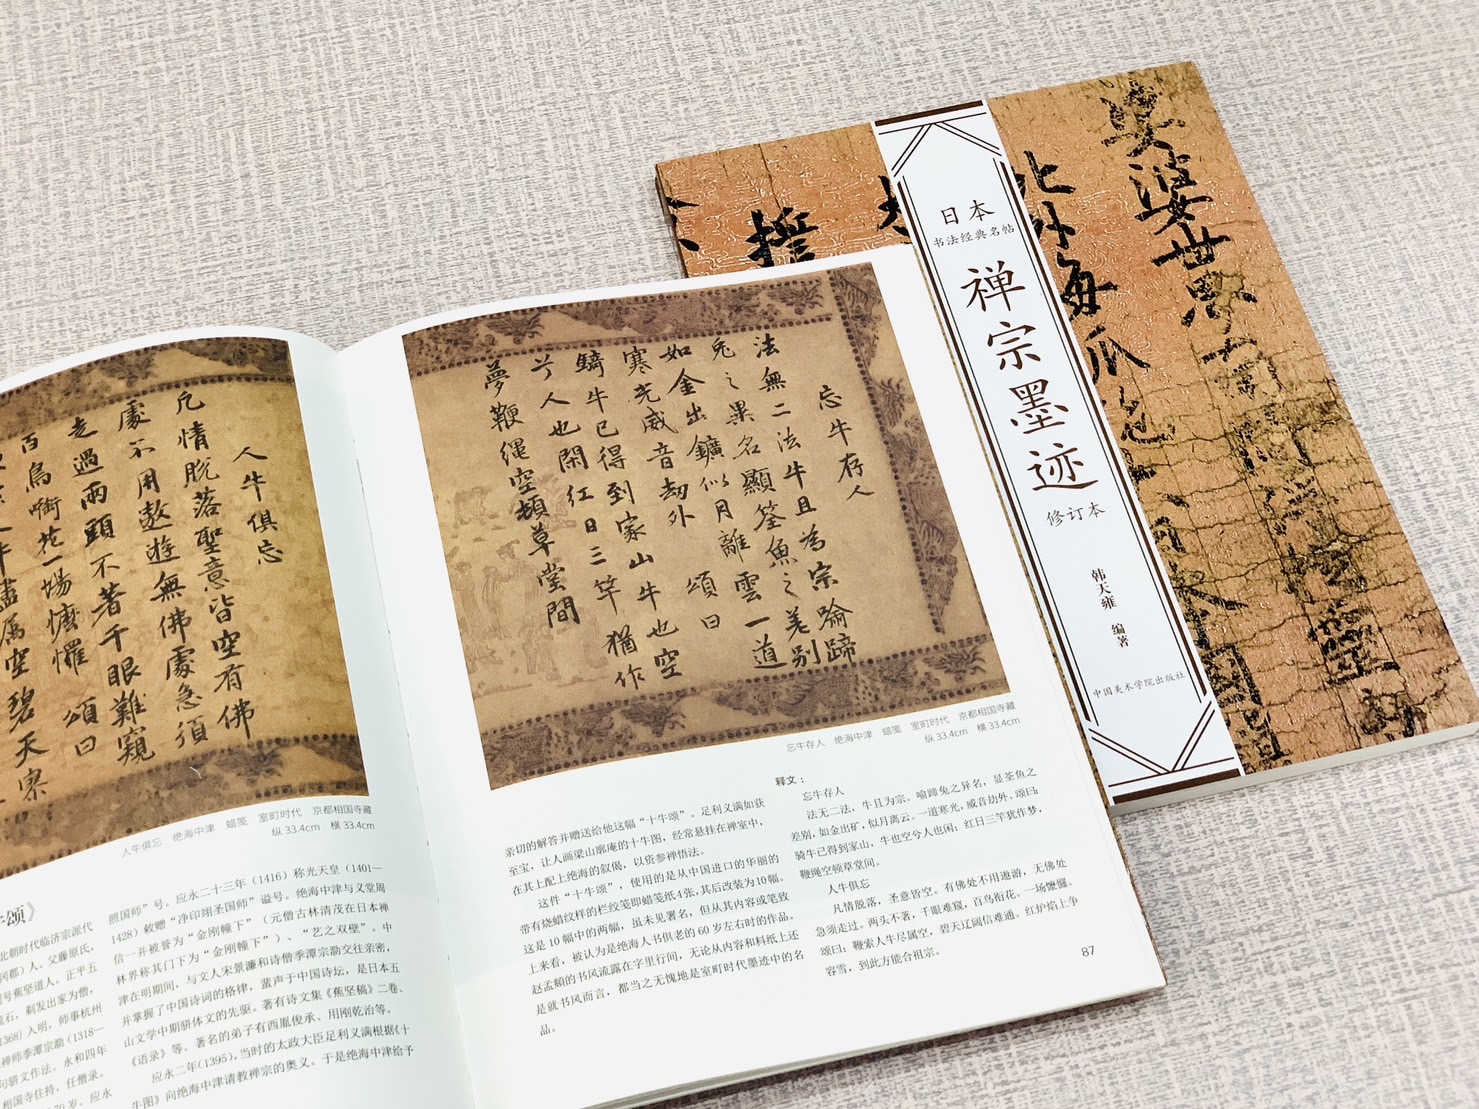 人牛俱忘
凡情脱落聖意皆空有佛
處不用遨遊無佛處急須
走過兩頭不著千眼難窺
百鳥啣花一場懡㦬 頌曰
盡属空碧天寥
人牛俱忘 绝海中津 蜡笺 室町时代 京都相国寺藏
纵 33.4cm 横 33.4cm
照国师”号。应永二十三年（1416）称光天皇（1401—
1428）敕赠“净印翊圣国师”谥号。绝海中津与义堂周
信一并被誉为“金刚幢下”（元僧古林清茂在日本禅
林界称其门下为“金刚幢下”）、“艺之双壁”。中
津在明期间，与文人宋景濂和诗僧季潭宗泐交往亲密，
并掌握了中国诗词的格律，蜚声于中国诗坛，是日本五
山文学中期骈体文的先驱。著有诗文集《蕉坚稿》二卷、
《语录》等。著名的弟子有西胤俊承、用刚乾治等。
应永二年(1395)，当时的太政大臣足利义满根据《十
牛图》向绝海中津请教禅宗的奥义。于是绝海中津给予
颂》
北朝时代临济宗派代
冈郡）人。父藤原氏，
号蕉坚道人。正平五
流石，剃发出家为僧，
1368）入明，师事杭州
禅师季潭宗泐（1318—
句骈文作法。永和四年
相国寺住持，任僧录。
70 岁。应永
忘牛存人
法無二法牛且為宗喻蹄
兔之異名顯筌魚之差别
如金出鑛似月離雲一道
寒光威音劫外 頌曰
騎牛已得到家山牛也空
兮人也閑红日三竿猶作
夢鞭绳空頓草堂間
忘牛存人 绝海中津 蜡笺 室町时代 京都相国寺藏
纵 33.4cm 横 33.4cm
亲切的解答并赠送给他这幅“十牛颂”。足利义满如获
至宝，让人画梁山廓庵的十牛图，经常悬挂在禅室中，
在其上配上绝海的叙偈，以资参禅悟法。
这件“十牛颂”，使用的是从中国进口的华丽的
带有烧蜡纹样的栏绞笺即蜡笺纸4张，其后改装为10幅。
这是 10 幅中的两幅，虽未见署名，但从其内容或笔致
上来看，被认为是绝海人书俱老的 60 岁左右时的作品。
赵孟頫的书风流露在字里行间，无论从内容和料纸上还
是就书风而言，都当之无愧地是室町时代墨迹中的名
品。
释文：
忘牛存人
法无二法，牛且为宗。喻蹄兔之异名，显筌鱼之
差别，如金出矿，似月离云。一道寒光，威音劫外。颂曰：
骑牛已得到家山，牛也空兮人也闲；红日三竿犹作梦，
鞭绳空顿草堂间。
人牛俱忘
凡情脱落，圣意皆空。有佛处不用遨游，无佛处
急须走过。两头不著，千眼难窥，百鸟衔花。一场懡㦬。
颂曰：鞭索人牛尽属空，碧天辽阔信难通。红炉焰上争
容雪，到此方能合祖宗。
87
日本
书法经典名帖
禅宗墨迹
修订本
韩天雍 编著
中国美术学院出版社
娑婆世界
北外海